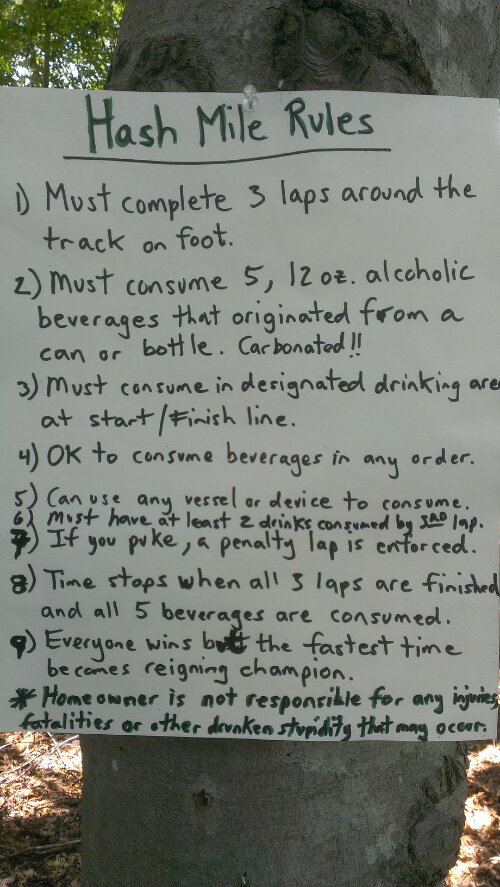 Hash Mile Rules
1) Must complete 3 laps around the
track on foot.
2) Must consume 5, 12 oz. alcoholic
beverages that originated from a
can or bottle. Carbonated!!
3) Must consume in designated drinking area
at start/Finish line.
4) OK to consume beverages in any order.
5) Can use any vessel or device to consume.
6) Must have at least 2 drinks consumed by 3RD lap.
7) If you puke, a penalty lap is enforced.
8) Time stops when all 3 laps are finished
and all 5 beverages are consumed.
9) Everyone wins but the fastest time
becomes reigning champion.
* Homeowner is not responsible for any injuries,
fatalities or other drunken stupidity that may occur.